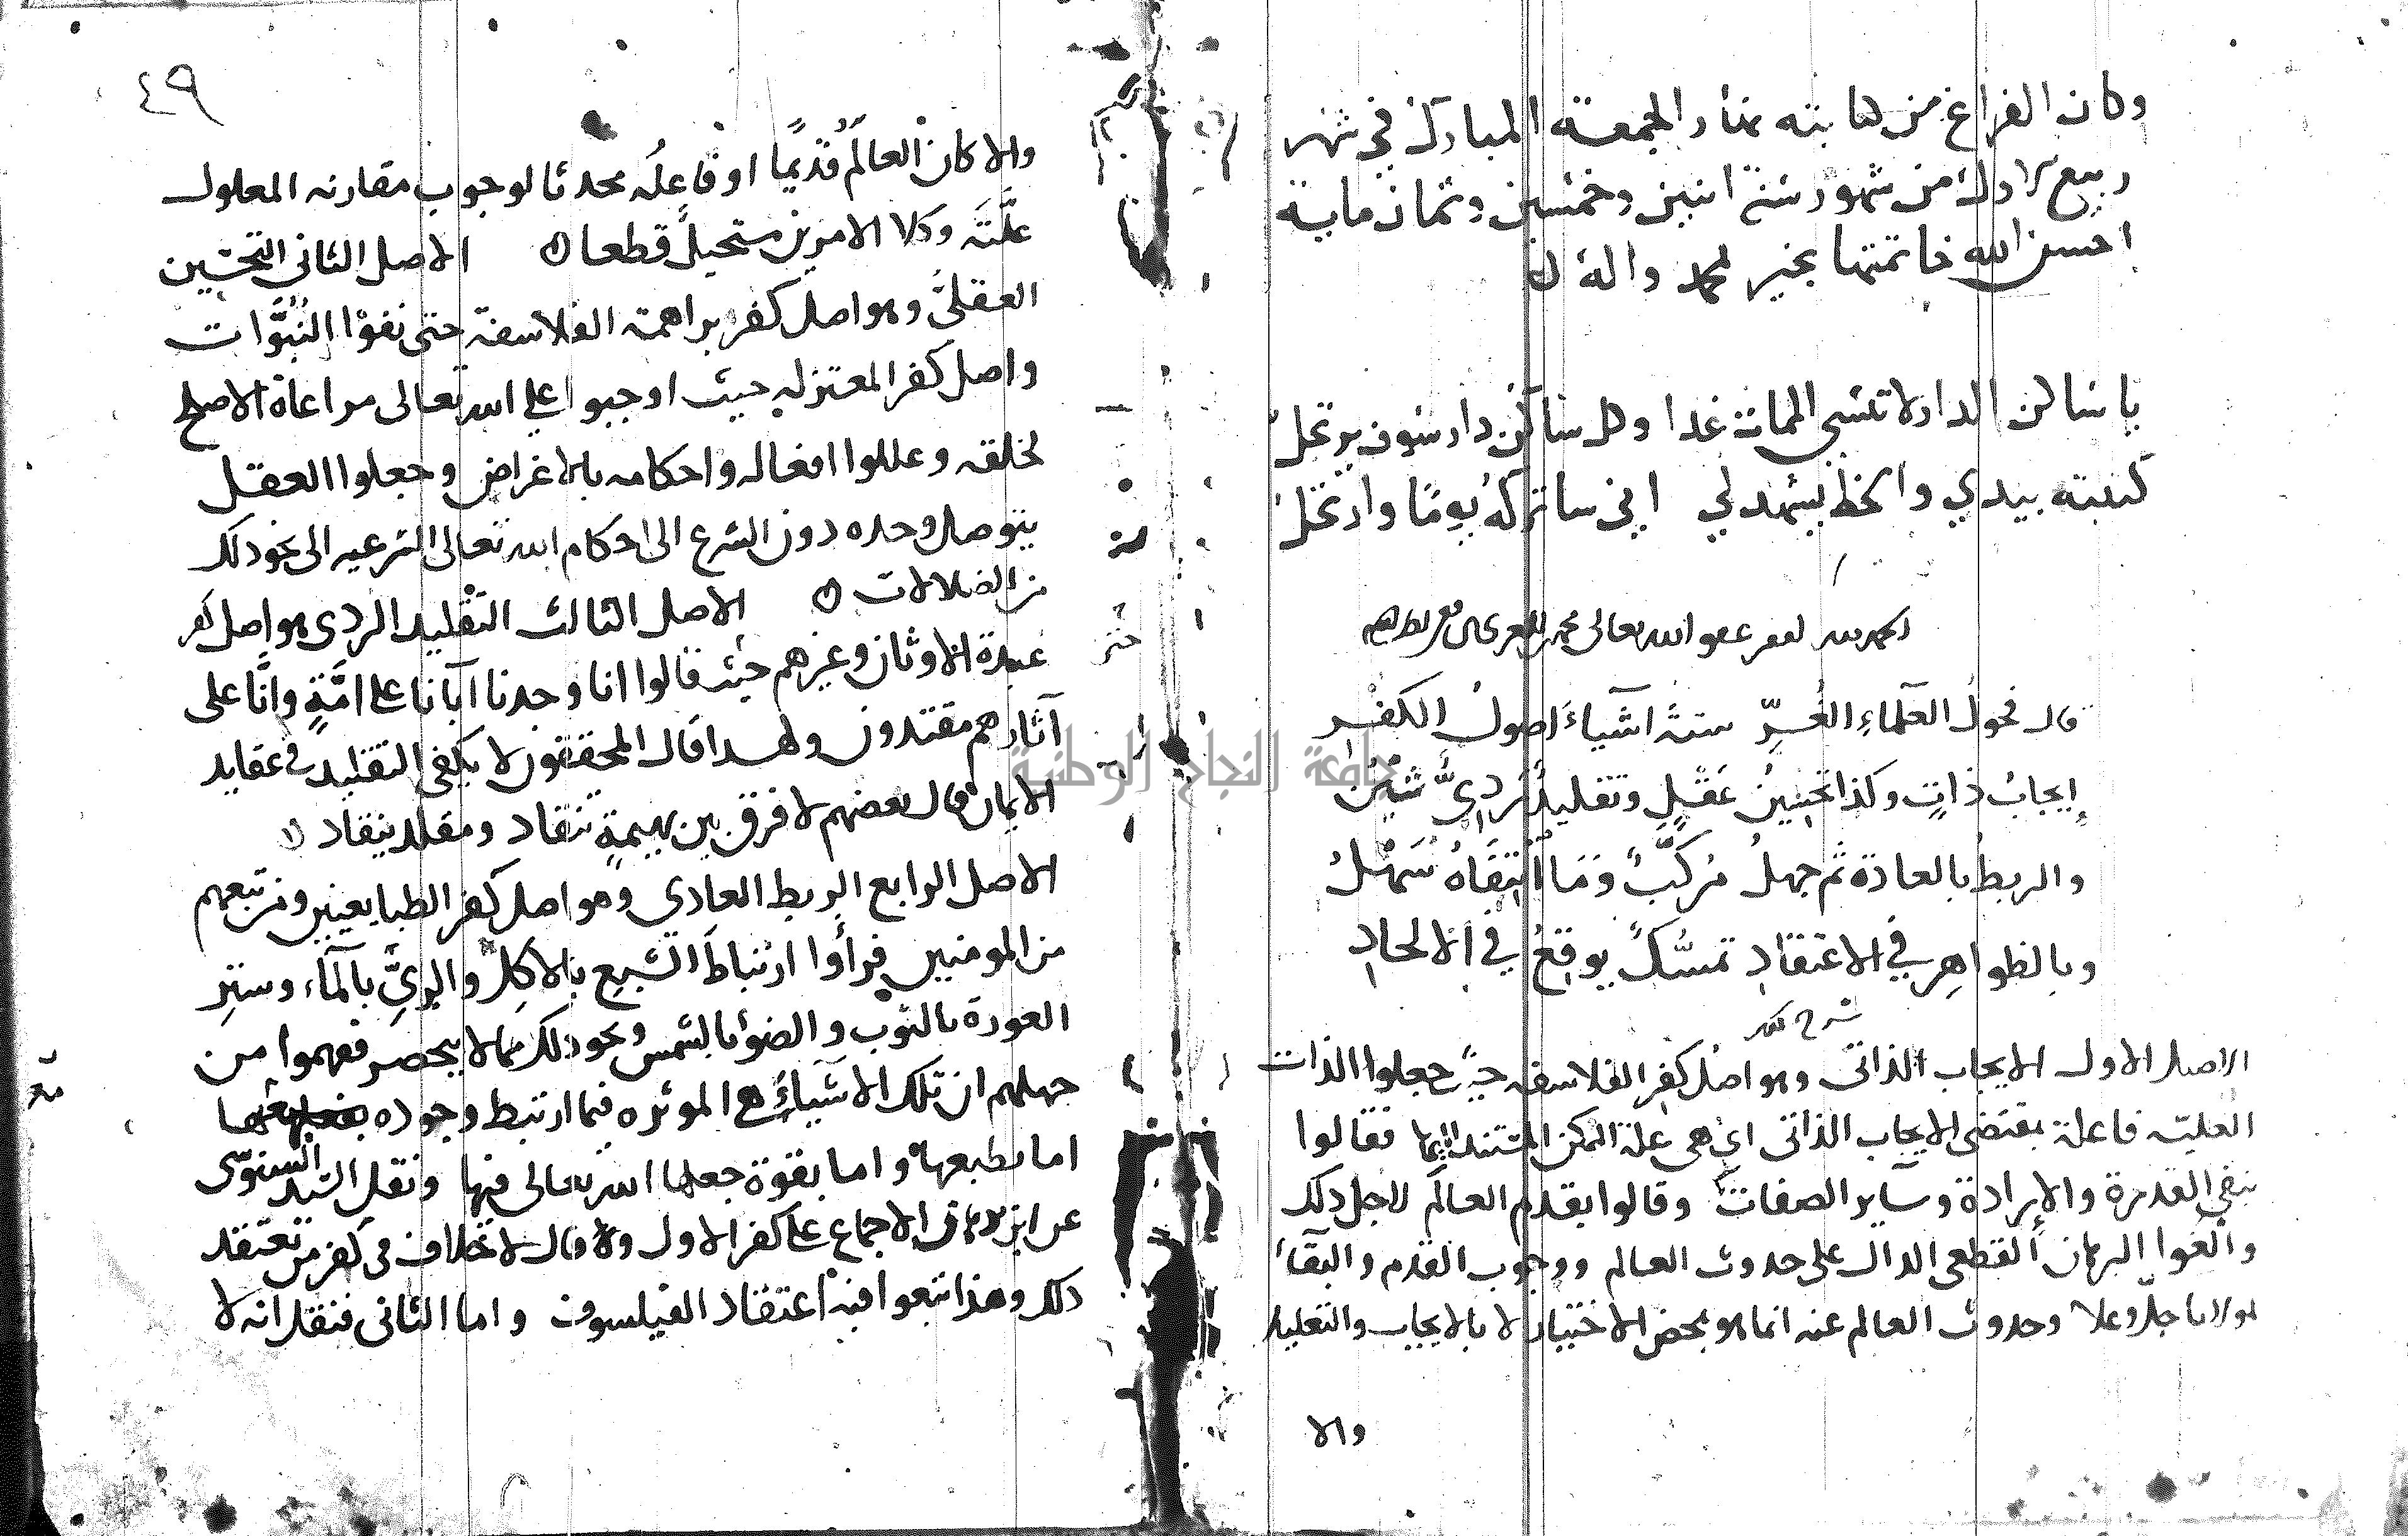 وكان الفراغ من كتابته نهار الجمعة المبارك في شهر
ربيع الاول من شهور سنة اثنين وخمسين وثمان ماية
احسن الله خاتمتها بخير لمحمد واله
يا ساكن الدار لا تنسي الممات غدا وكل ساكن دار سوف يرتحل
كتبته بيدي والخط يشهد لي اني ساتركه يوما وارتحل
الحمد لله عفو الله تعالى محمد
قال فحول العلماء الغر ستة اشياء اصول الكفر
إيجاب ذات وكذا تحسين عقل وتقليد ردي شين
والربط بالعادة ثم جهل مركب وما انتفاه سهل
وبالظواهر في الاعتقاد تمسك يوقع في الالحاد
شرح
الاصل الاول الايجاب الذاتى وهو اصل كفر الفلاسفه حيث جعلوا الذات
العليّه فاعلة بمقتضى الايجاب الذاتى اي هى علة الممكن المستند اليها فقالوا
بنفي القدرة والإرادة وساير الصفات وقالوا بقدم العالم لاجل ذلك
والغوا البرهان القطعى الدال على حدوث العالم ووجوب القدم والبقاء
لمولانا جلّ وعلا وحدوث العالم عنه انما هو بمحض الاختيار لا بالايجاب والتعليل
والا
٤٩
والا كان العالَم قديمًا او فاعِلُه محدثا لوجوب مقارنه المعلول
علّته وكلا الامرين مستحيل قطعا الاصل الثانى التحسين
العقلىّ وهو اصل كفر براهمة الفلاسفة حتى نفوْا النُّبوَّات
واصل كفر المعتزله حيث اوجبوا على الله تعالى مراعاة الاصلح
لخلقه وعللوا افعاله واحكامه بالاغراض وجعلوا العقل
يتوصل وحده دون الشرع الى احكام الله تعالى الشرعيه الى نحو ذلك
من الضلالات الاصل الثالث التقليد الردى هو اصل كفر
عبدة الاوثان وغيرهم حيث قالوا انا وجدنا آباءنا على امّةٍ وانّا على
آثارهم مقتدون ولهذا قال المحققون لا يكفى التقليد فى عقايد
الايمان قال بعضهم لا فرق بين بهيمةٍ تنقاد ومقلد ينقاد
الاصل الرابع الربط العادى وهو اصل كفر الطبايعيين ومن تبعهم
من المومنين فرأوا ارتباط الشبع بالاكل والريّ بالماء وستر
العورة بالثوب والضوء بالشمس ونحو ذلك مما لا ينحصر ففهموا من
جهلهم ان تلك الاشياء هى الموثره فيما ارتبط وجوده
اما بطبعها واما بقوة جعلها الله تعالى فيها ونقل السيد السنوسى
عن ابن دهاق الاجماع على كفر الاول قال لا خلاف فى كفر من تعتقد
ذلك وهذا تبعوا فيه اعتقاد الفيلسوف واما الثانى فنقل انه لا
جامعة النجاح الوطنية